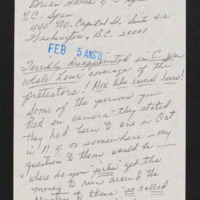 Brian Lamb
C-Span
400 No. Capitol St. Suite 612
Washington, D.C. 20001
FEB 5 ANS'D
Terribly disappointed in C-
whole hour coverage of the
protestors! (Not two several hours!
Some of the persons you
had on camera they stated
they had been to one in Oct
in N.Y. or somewhere - my
question to them would be -
"where do you jerks get the
"money to run around the
to these "so called